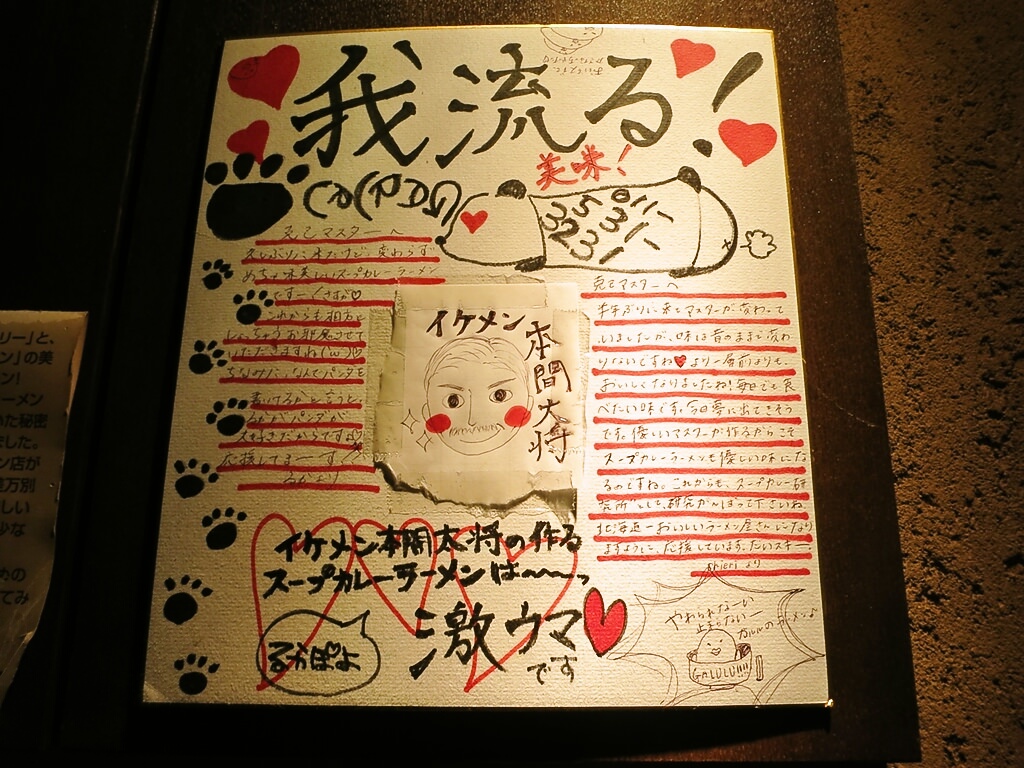 我流る!
美味!
イケメン
本間大将
克てマスターへ
久しぶりに来たけど、変わらず
めちゃ味美しいスープカレーラーメン
ですー!さすが♡
これからも相方と
いただきますね(ω)♡
ちなみに、なんでパンダを
書いてるかと言うと、
パンダが
大好きだからです
応援してまーす
るかより
克てマスターへ
半年ぶりに来てマスターが変わって
いましたが、味は昔のままで変わ
りないですね♥より一層前よりも
おいしくなりましたね!毎日でも食
べたい味です。今日夢に出てきそう
です。優しいマスターが作るからこそ
スープカレーラーメンも優しい味にな
るのですね。これからも、スープカレー研
究所として、研究がんばって下さいね
北海道一おいしいラーメン屋さんになり
ますように、応援しています。だいスキ
chieriより
イケメン本間大将の作る
スープカレーラーメンは〜〜〜っ
激ウマ
です
るかぽよ
やめられなーい
止まらなーい
ガルルのラーメン♪
GALULU!!!!